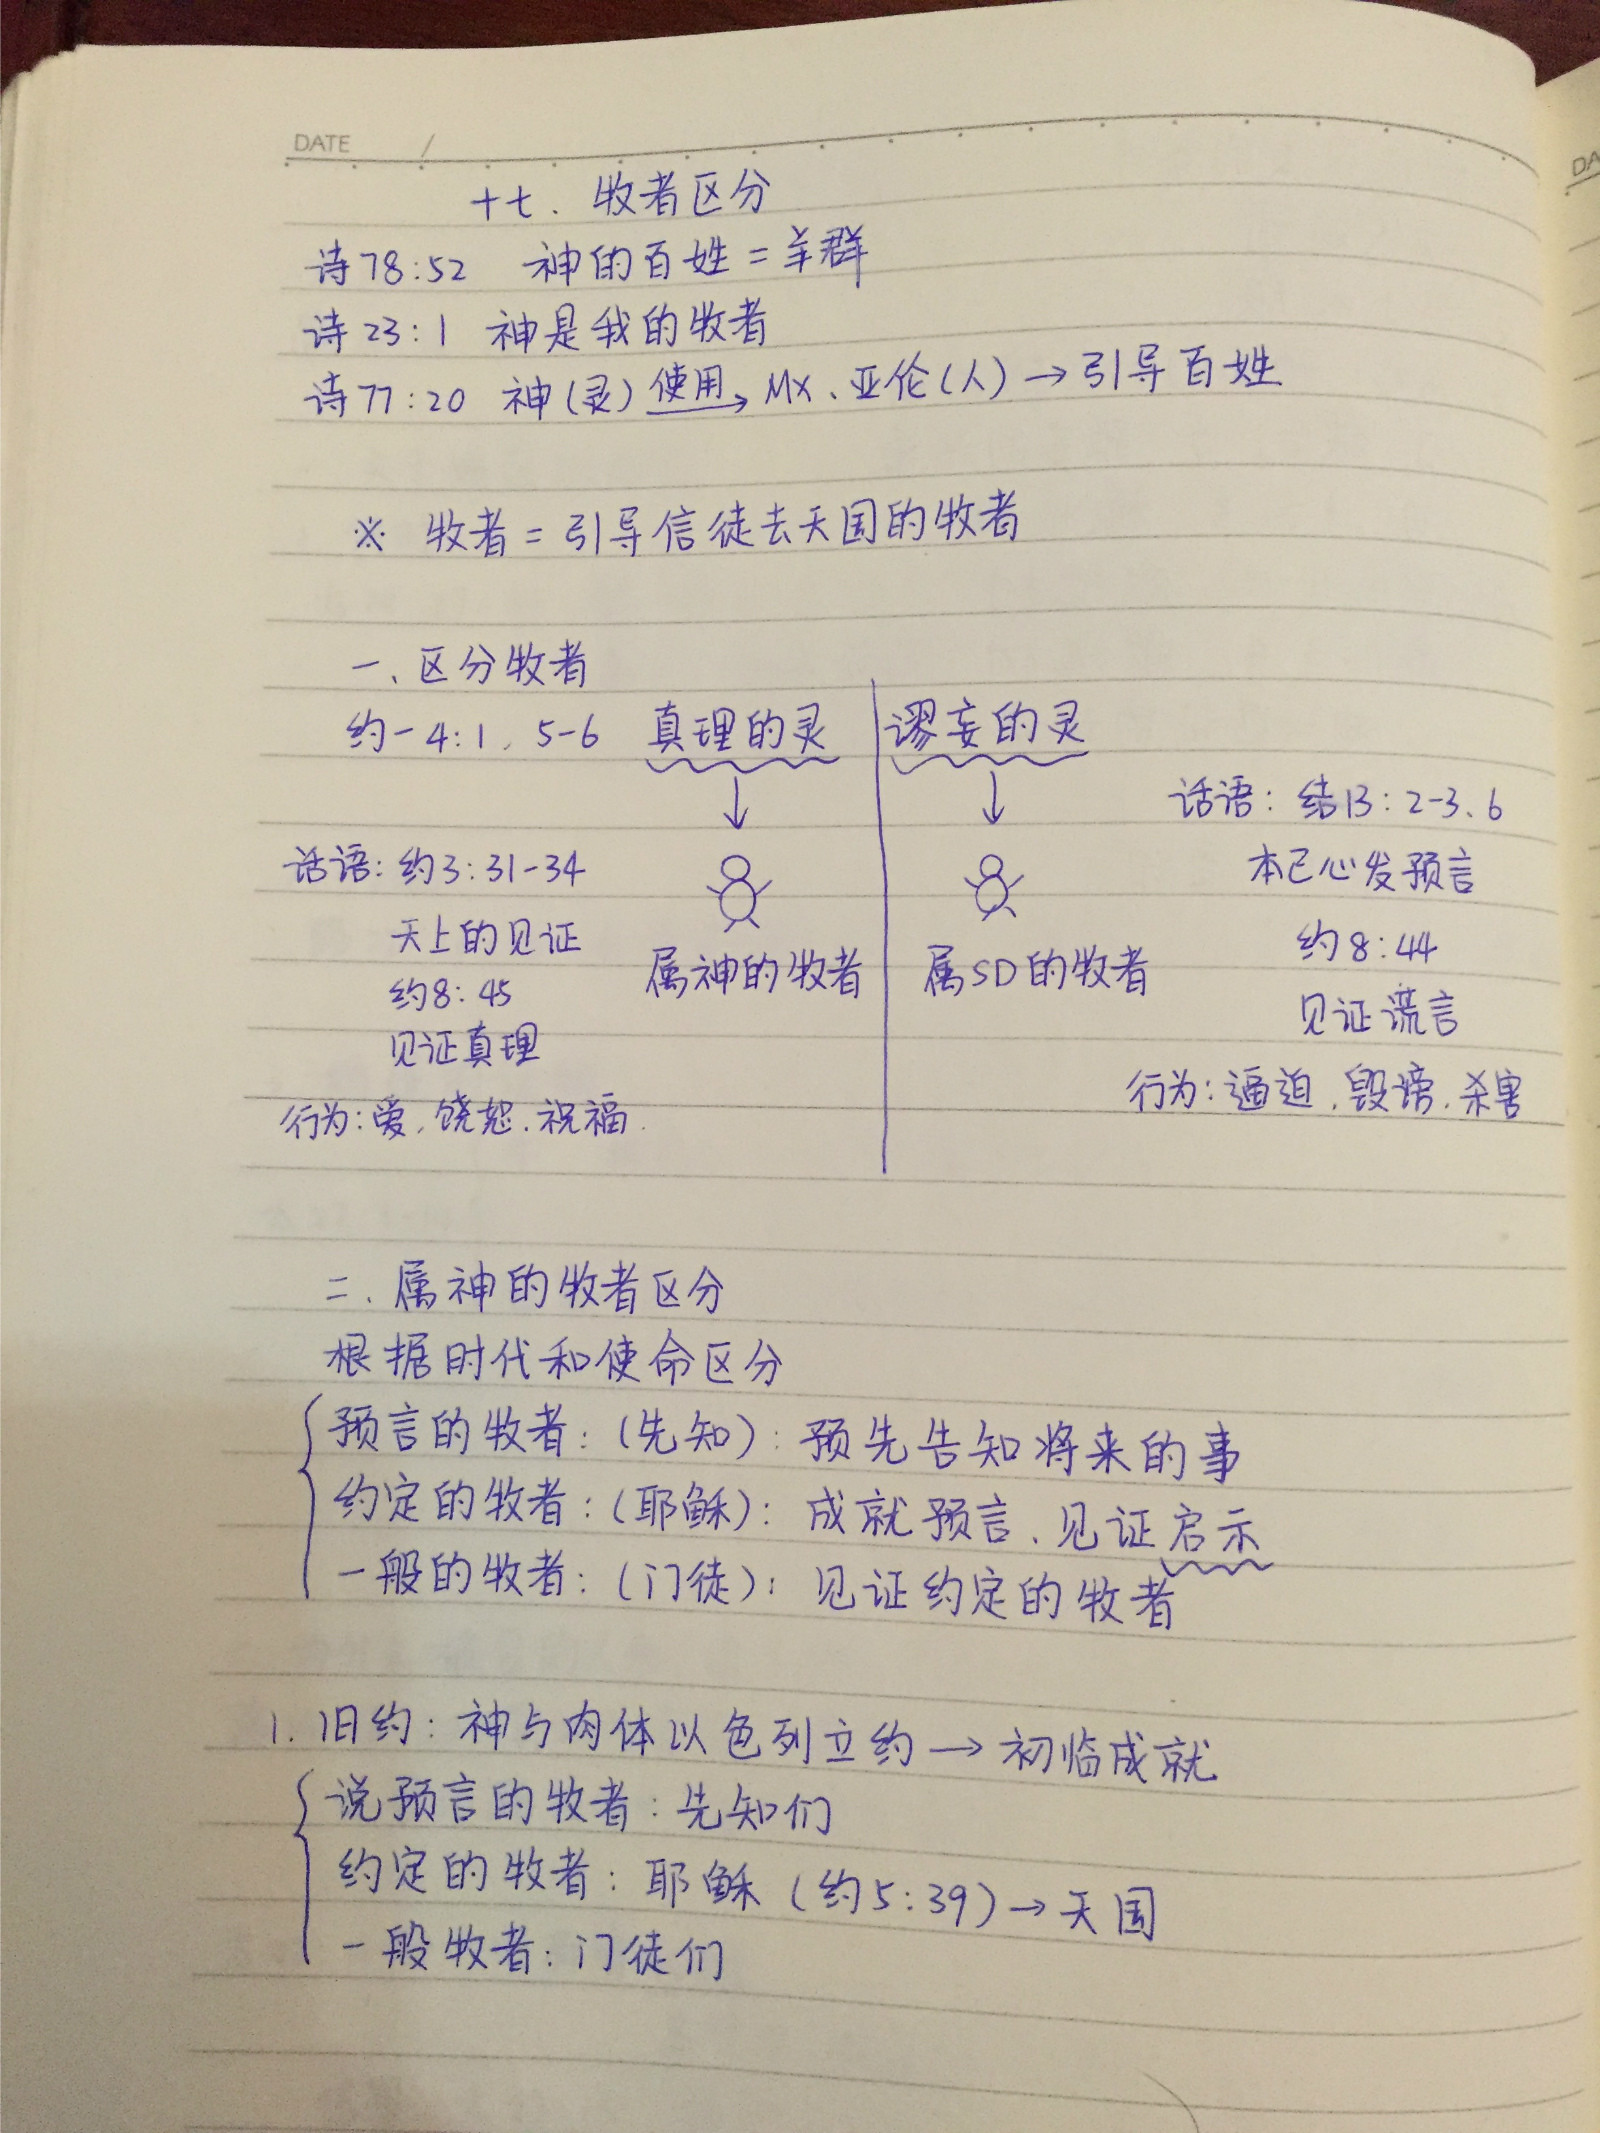 DATE /
十七、牧者区分
诗78:52 神的百姓=羊群
诗23:1 神是我的牧者
诗77:20 神(灵)使用→MX、亚伦(人)→引导百姓
※ 牧者=引导信徒去天国的牧者
一、区分牧者
约一4:1、5-6 真理的灵 谬妄的灵
话语:约3:31-34
天上的见证
约8:45
见证真理
行为:爱、饶恕、祝福
属神的牧者
属SD的牧者
话语:结13:2-3、6
本己心发预言
约8:44
见证谎言
行为:逼迫、毁谤、杀害
二、属神的牧者区分
根据时代和使命区分
预言的牧者:(先知):预先告知将来的事
约定的牧者:(耶稣):成就预言、见证启示
一般的牧者:(门徒):见证约定的牧者
1.旧约:神与肉体以色列立约→初临成就
说预言的牧者:先知们
约定的牧者:耶稣(约5:39)→天国
一般牧者:门徒们
DA